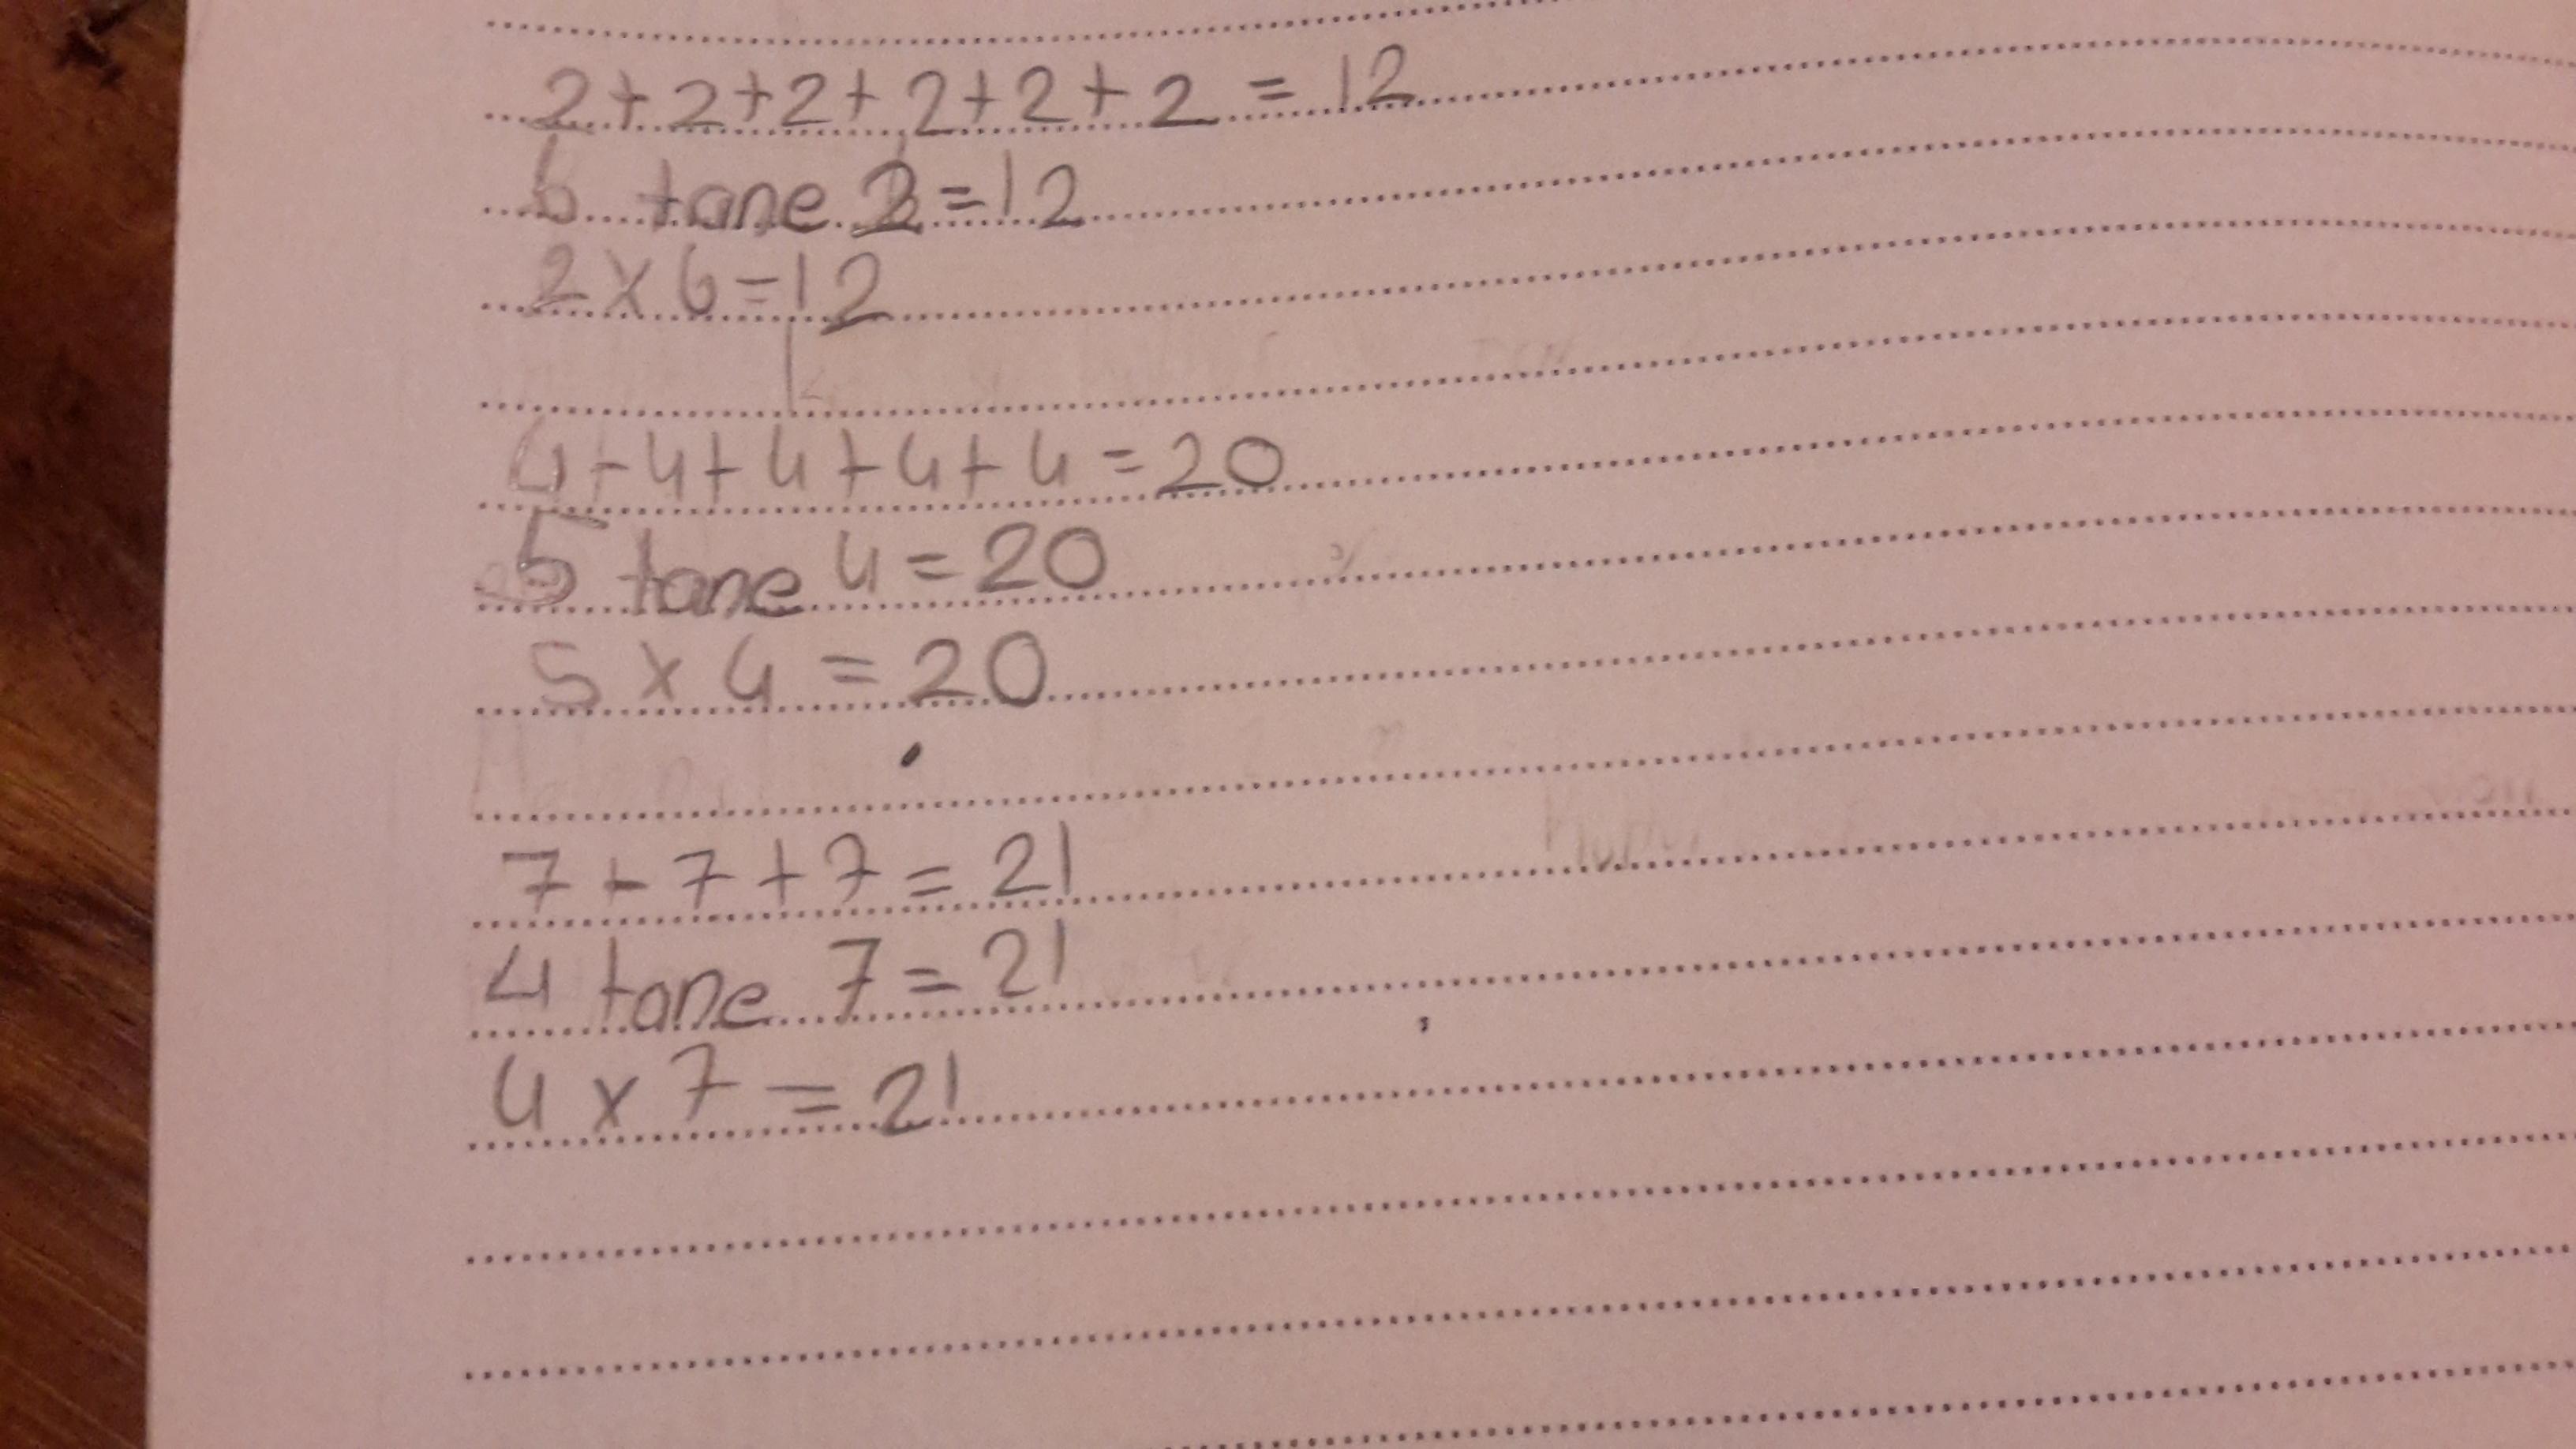 2+2+2+2+2+2=12
6 tane 2=12
2x6=12
4+4+4+4+4=20
5 tane 4=20
5x4=20
7+7+7=21
4 tane 7=21
4x7=21